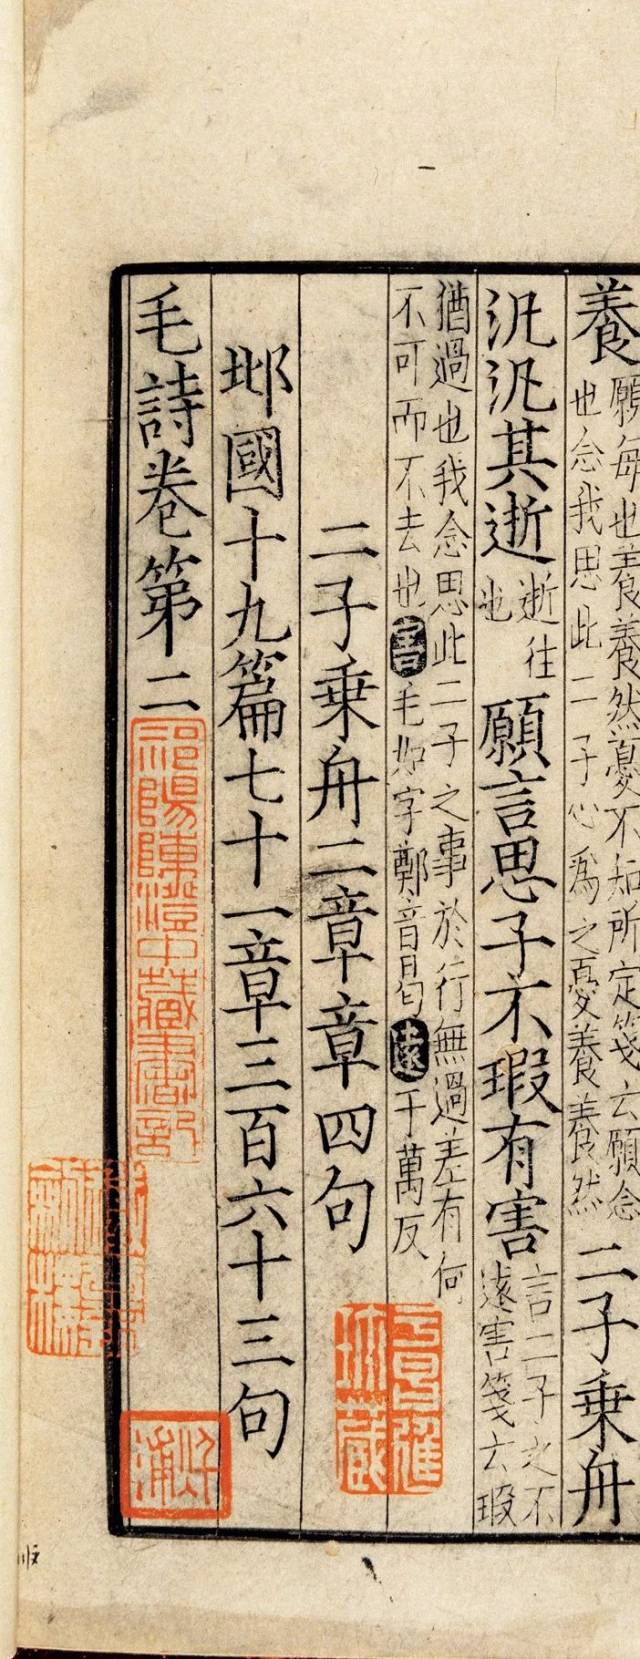 養願每也養養然憂不知所定箋云願念
也念我思此二子心為之憂養養然二子乗舟
汎汎其逝逝往
也願言思子不瑕有害言二子之不
遠害箋云瑕
猶過也我念思此二子之事於行無過差有何
不可而不去也害毛如字鄭音曷遠于萬反
二子乗舟二章章四句
邶國十九篇七十一章三百六十三句
毛詩卷第二
祁陽陳澄中藏書記